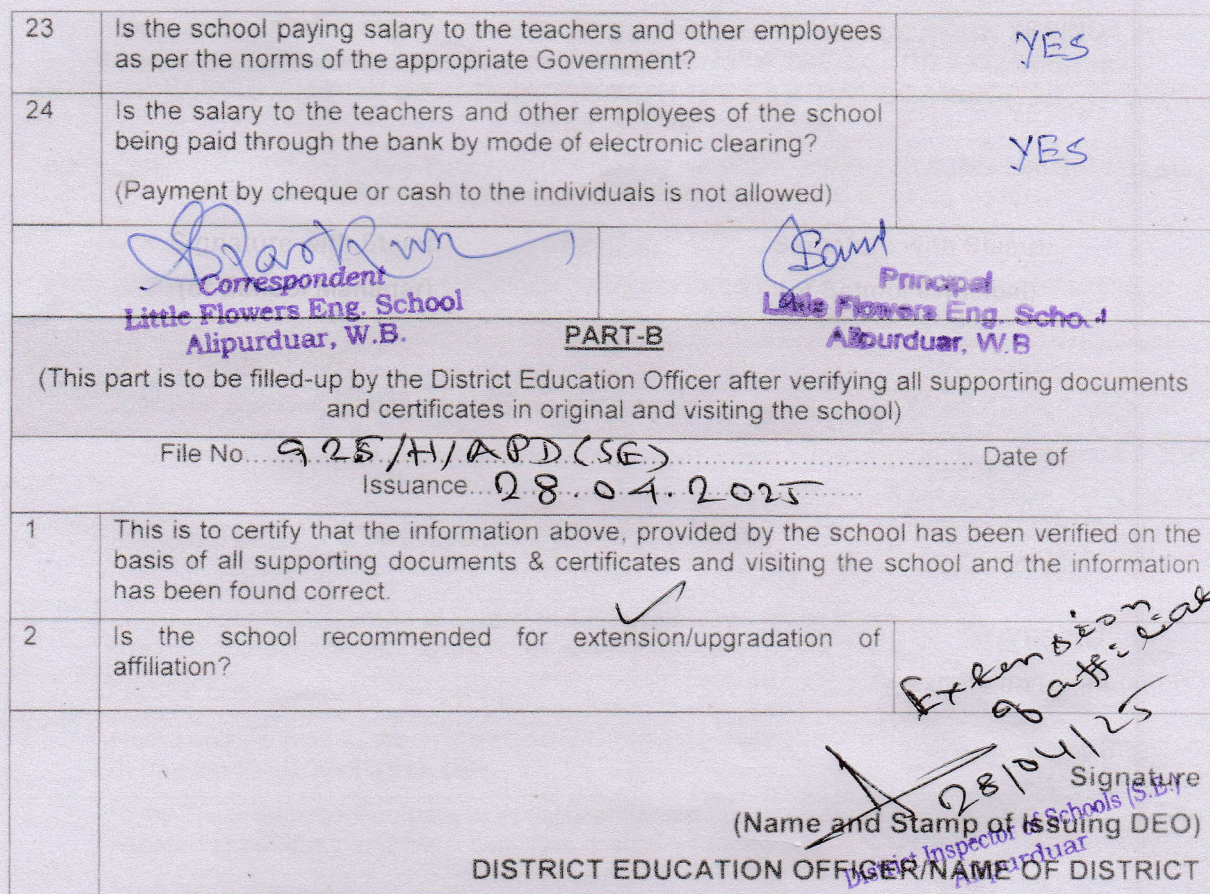 23 Is the school paying salary to the teachers and other employees YES
as per the norms of the appropriate Government?
24 Is the salary to the teachers and other employees of the school
being paid through the bank by mode of electronic clearing? YES
(Payment by cheque or cash to the individuals is not allowed)
Correspondent
Little Flowers Eng. School
Alipurduar, W.B.
Principal
Little Flowers Eng. School
Alipurduar, W.B
PART-B
(This part is to be filled-up by the District Education Officer after verifying all supporting documents
and certificates in original and visiting the school)
File No. 925/H/APD(SE) Date of
Issuance 28.04.2025
1 This is to certify that the information above, provided by the school has been verified on the
basis of all supporting documents & certificates and visiting the school and the information
has been found correct.
2 Is the school recommended for extension/upgradation of
affiliation?
Extension
of
28/04/25
Signature
(Name and Stamp of Issuing DEO)
District Inspector of Schools (S.E.)
Alipurduar
DISTRICT EDUCATION OFFICER/NAME OF DISTRICT